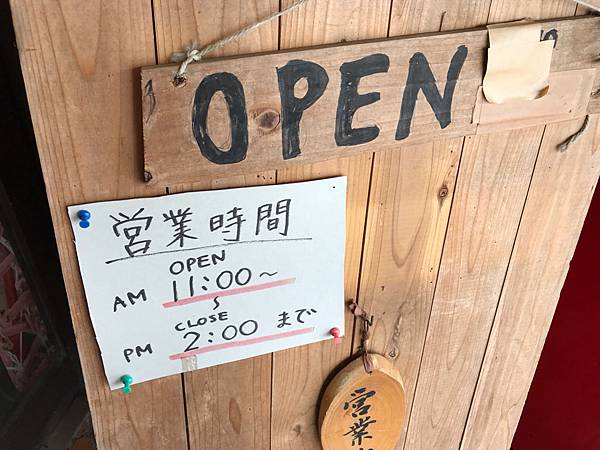 OPEN
営業時間
OPEN
AM 11:00〜
〜
CLOSE
PM 2:00 まで
営業